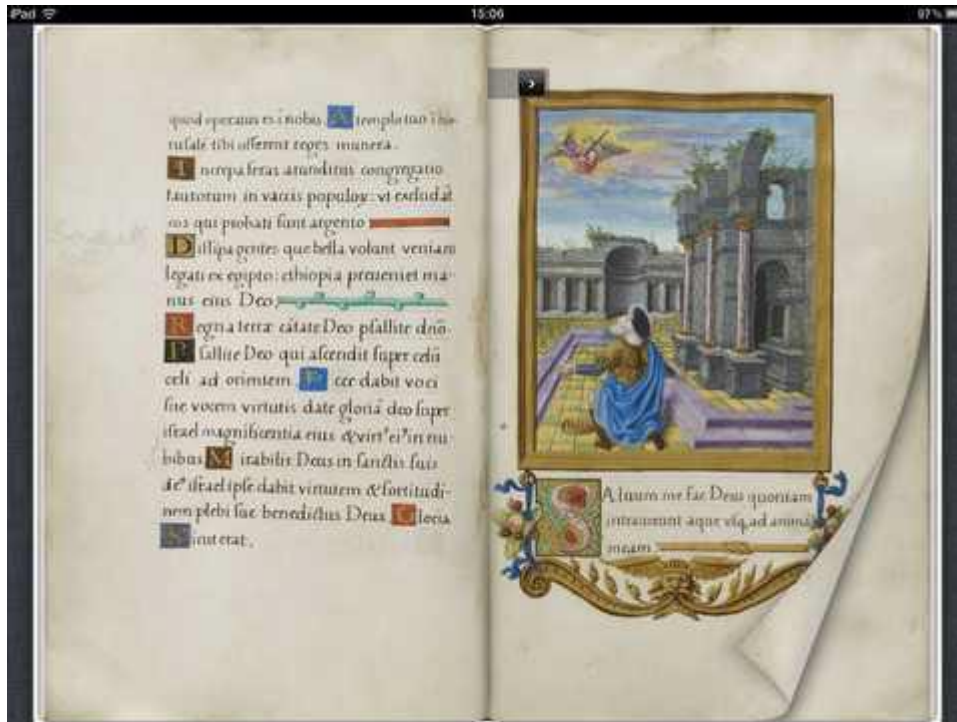 iPad 15:06 97%
quod operatus es i nobis. A templo tuo i hie
rusale tibi offerent reges munera.
I ncrepa feras arundinis congregatio
taurorum in vaccis populoꝝ: vt excludāt
eos qui probati sunt argento
D issipa gentes que bella volunt veniam
legati ex egipto: ethiopia preueniet ma-
nus eius Deo.
R egna terræ cātate Deo psallite dnō
P sallite Deo qui ascendit super celū
celi ad orientem. E cce dabit voci
sue vocem virtutis date gloriā deo super
israel magnificentia eius & virt' ei' in nu
bibus M irabilis Deus in sanctis suis
de' israel ipse dabit virtutem & fortitudi-
nem plebi sue benedictus Deus. G loria
S icut erat.
S Aluum me fac Deus quoniam
intrauerunt aque vsq, ad animā
meam.